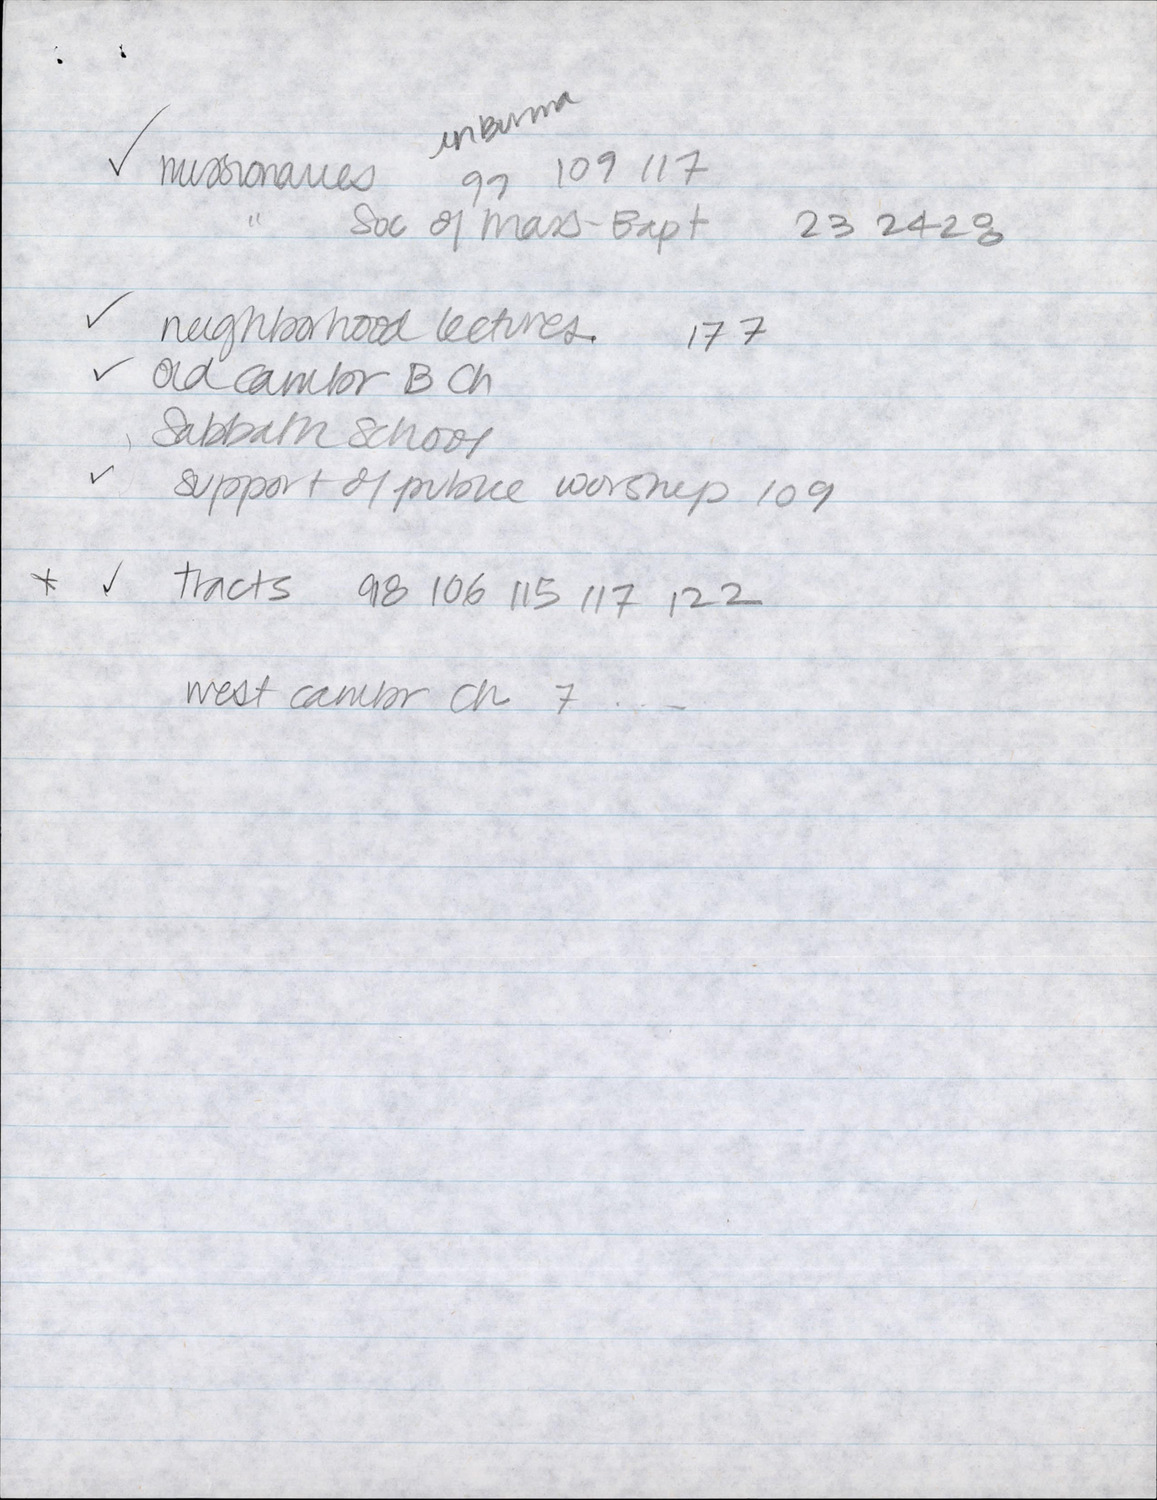 in Burma
✓ missionaries 99 109 117
" Soc of Mass-Bapt 23 24 28
✓ neighborhood lectures. 177
✓ Old Cambr B Ch
Sabbath School
✓ support of public worship 109
* ✓ tracts 98 106 115 117 122
West Cambr Ch 7 ... -